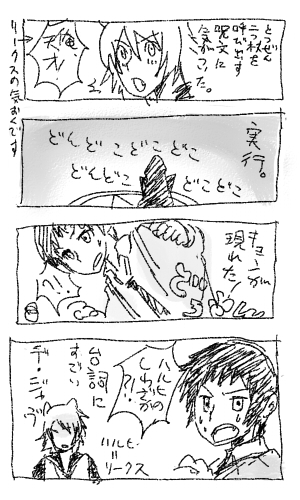 とつぜん
二つ杖を
呼び出す
呪文に
気がついた。
俺、
天才!
リークスの気おくです
実行。
どんどこどこどこ
どんどこ
どこどこ
キョンが
現れた。
ハルヒの
しわざか
?!
台詞に
すごい
デ・ジャヴ
ハルヒ=
リークス